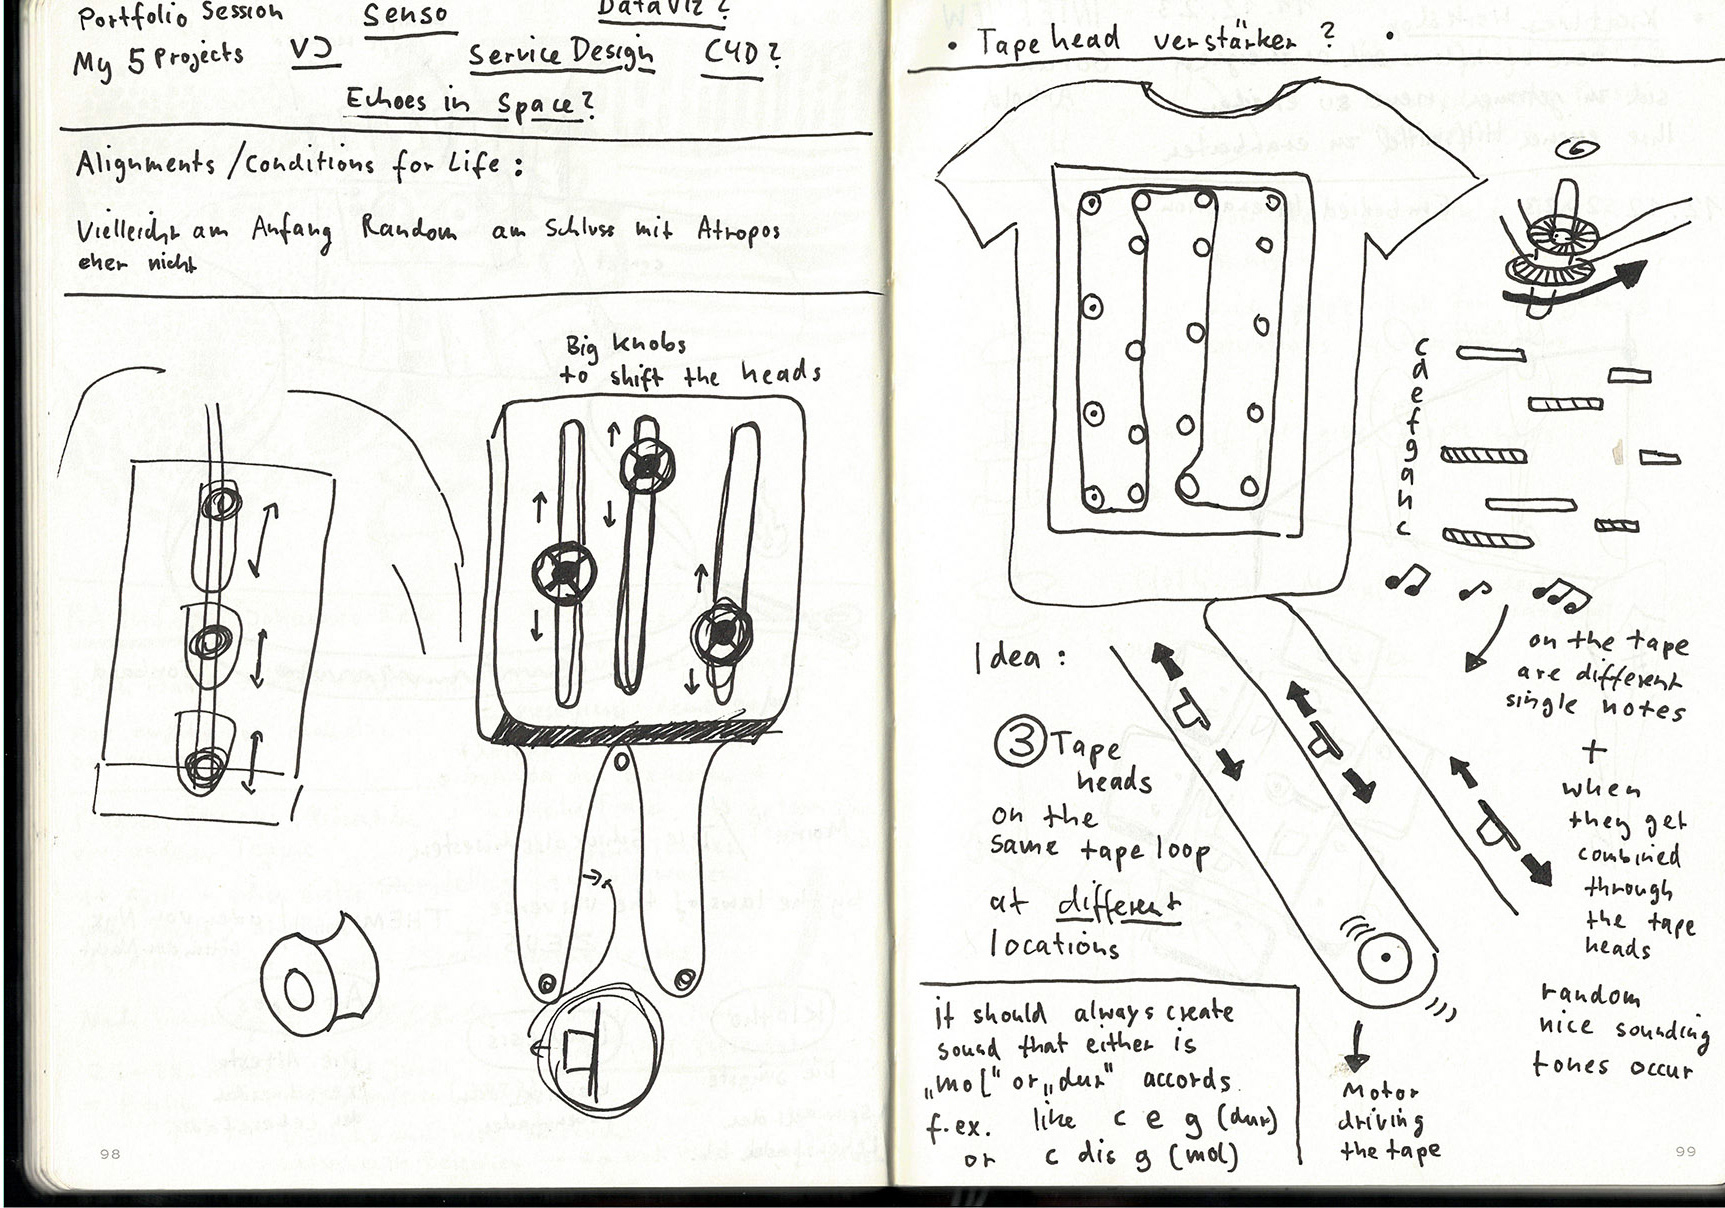 Portfolio Session Senso DataViz?
My 5 Projects VJ Service Design C4D?
Echoes in Space?
Alignments / Conditions for Life :
Vielleicht am Anfang Random am Schluss mit Atropos
eher nicht
Big knobs
to shift the heads
98
• Tape head verstärker ? •
c
d
e
f
g
a
h
c
on the tape
are different
single notes
+
when
they get
combined
through
the tape
heads
random
nice sounding
tones occur
Idea :
3 Tape
heads
on the
same tape loop
at different
locations
it should always create
sound that either is
„mol" or „dur" accords.
f.ex. like c e g (dur)
or c dis g (mol)
Motor
driving
the tape
99